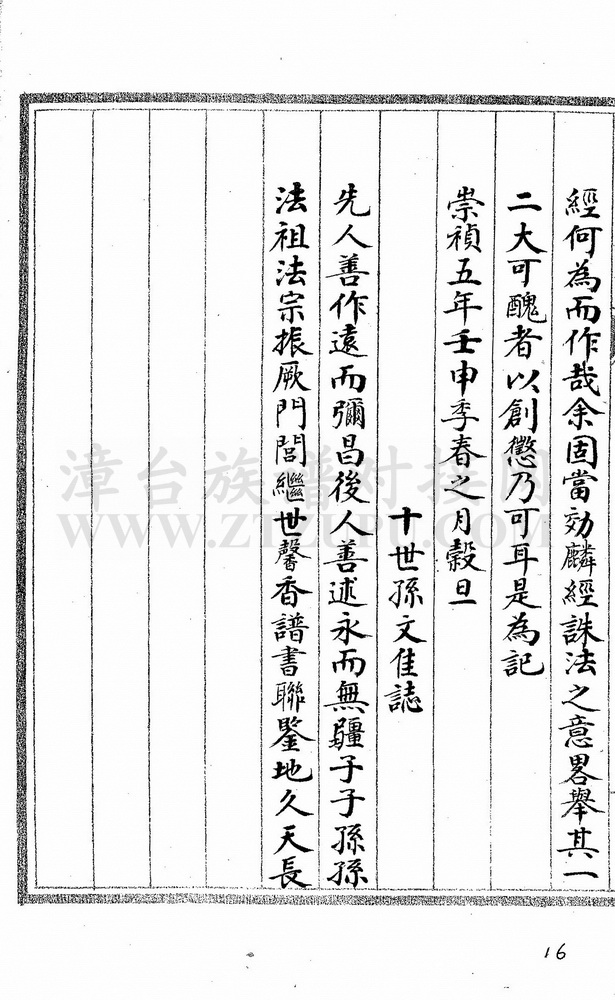 經何為而作哉余固當効麟經誅法之意畧舉其一
二大可醜者以創懲乃可耳是為記
崇禎五年壬申季春之月穀旦
十世孫文佳誌
先人善作遠而彌昌後人善述永而無疆子子孫孫
法祖法宗振厥門閭繼世馨香譜書聯鋻地久天長
16